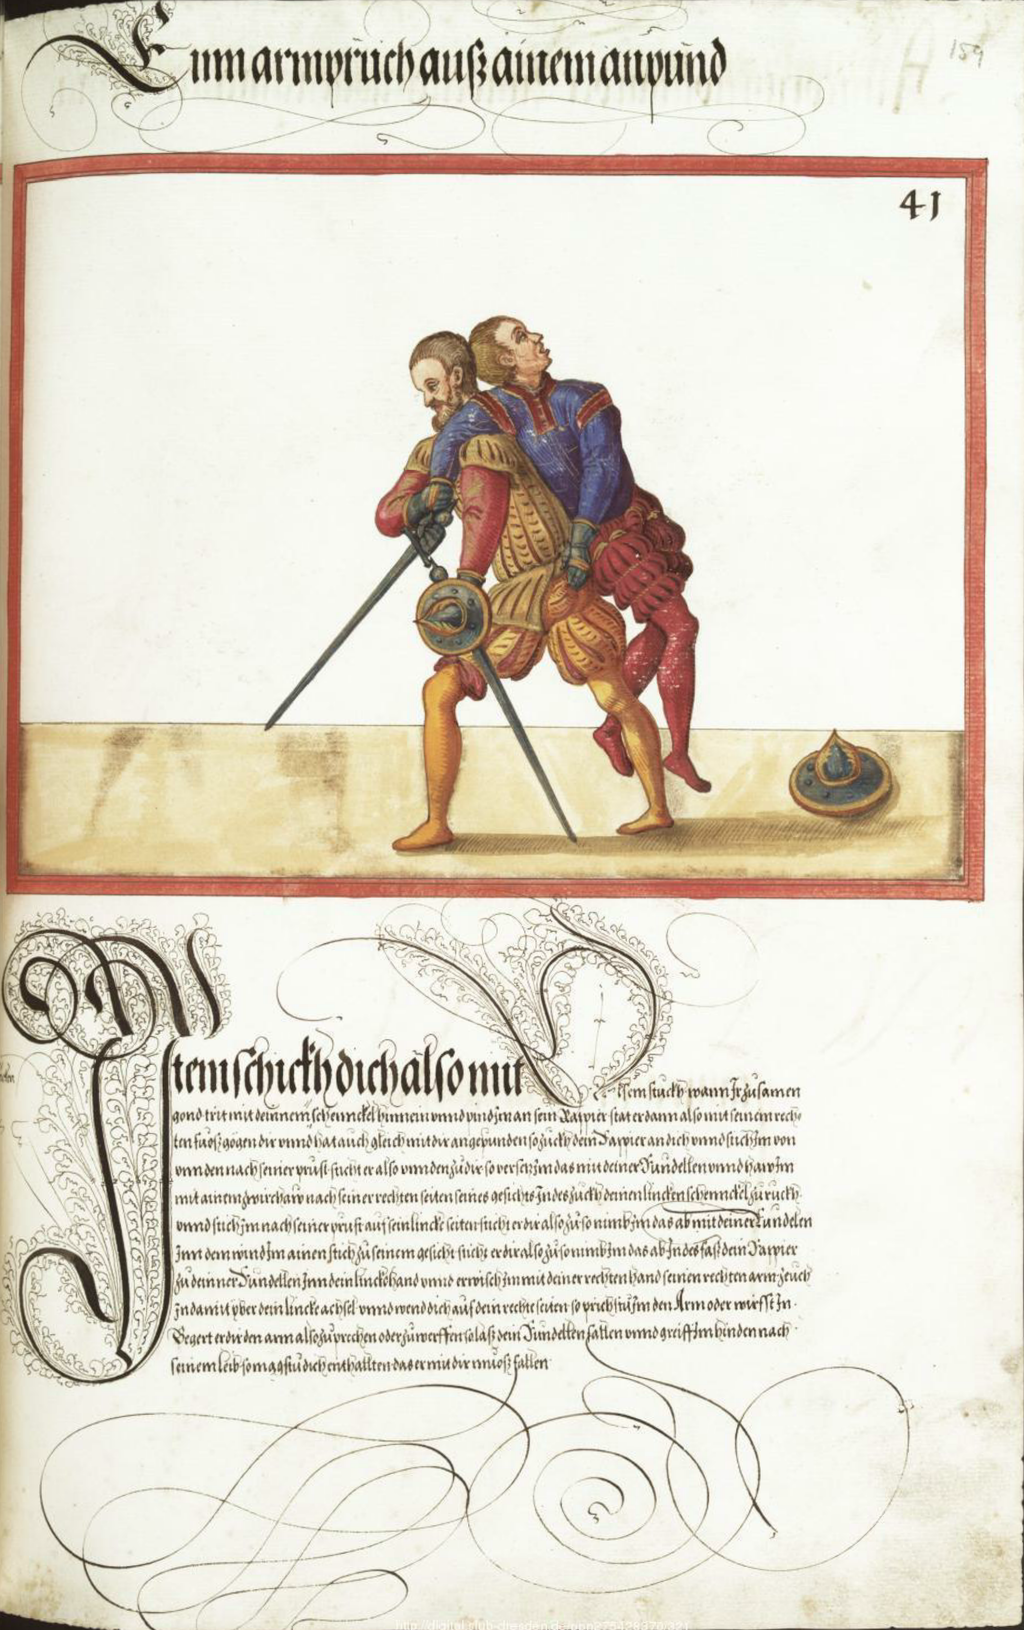 Ein armpruch auß ainem anpund
159
41
Item schickh dich also mit
disem stuckh wann Ir zusamen
gond trit mit deinnem schennckel hinnein vnnd pind Im an sein Rappier stat er dann also mit seinem rech-
ten fuos gögen dir vnnd hat auch gleich mit dir angepunden so zuckh dein Rappier an dich vnnd stich Im von
vnnden nach seiner prust sticht er also vnnden zu dir so versetz Im das mit deiner Rundellen vnnd haw Im
mit ainem zwirchaw nach seiner rechten seiten seines gesichts Indes zuckh deinen lincken schennckel zu ruckh
vnnd stich Im nach seiner prust auf sein lincke seiten sticht er dir also zu so nimb Im das ab mit deiner Rundelen
Inn dem wind Im ainen stich zu seinem gesicht sticht er dir also zu so nimb Im das ab Indes fass dein Rappier
zu deinner Rundellen Inn dein lincke hand vnnd erwisch Im mit deiner rechten hand seinen rechten arm zeuch
In damit yber dein lincke achsel vnnd wend dich auf dein rechte seiten so prichstu Im den Arm oder wirffst In.
Begert er dir den arm also zu prechen oder zu werffen so laß dein Rundellen fallen vnnd greiff Im hinden nach
seinem leib so magstu dich enthallten das er mit dir muoß fallen